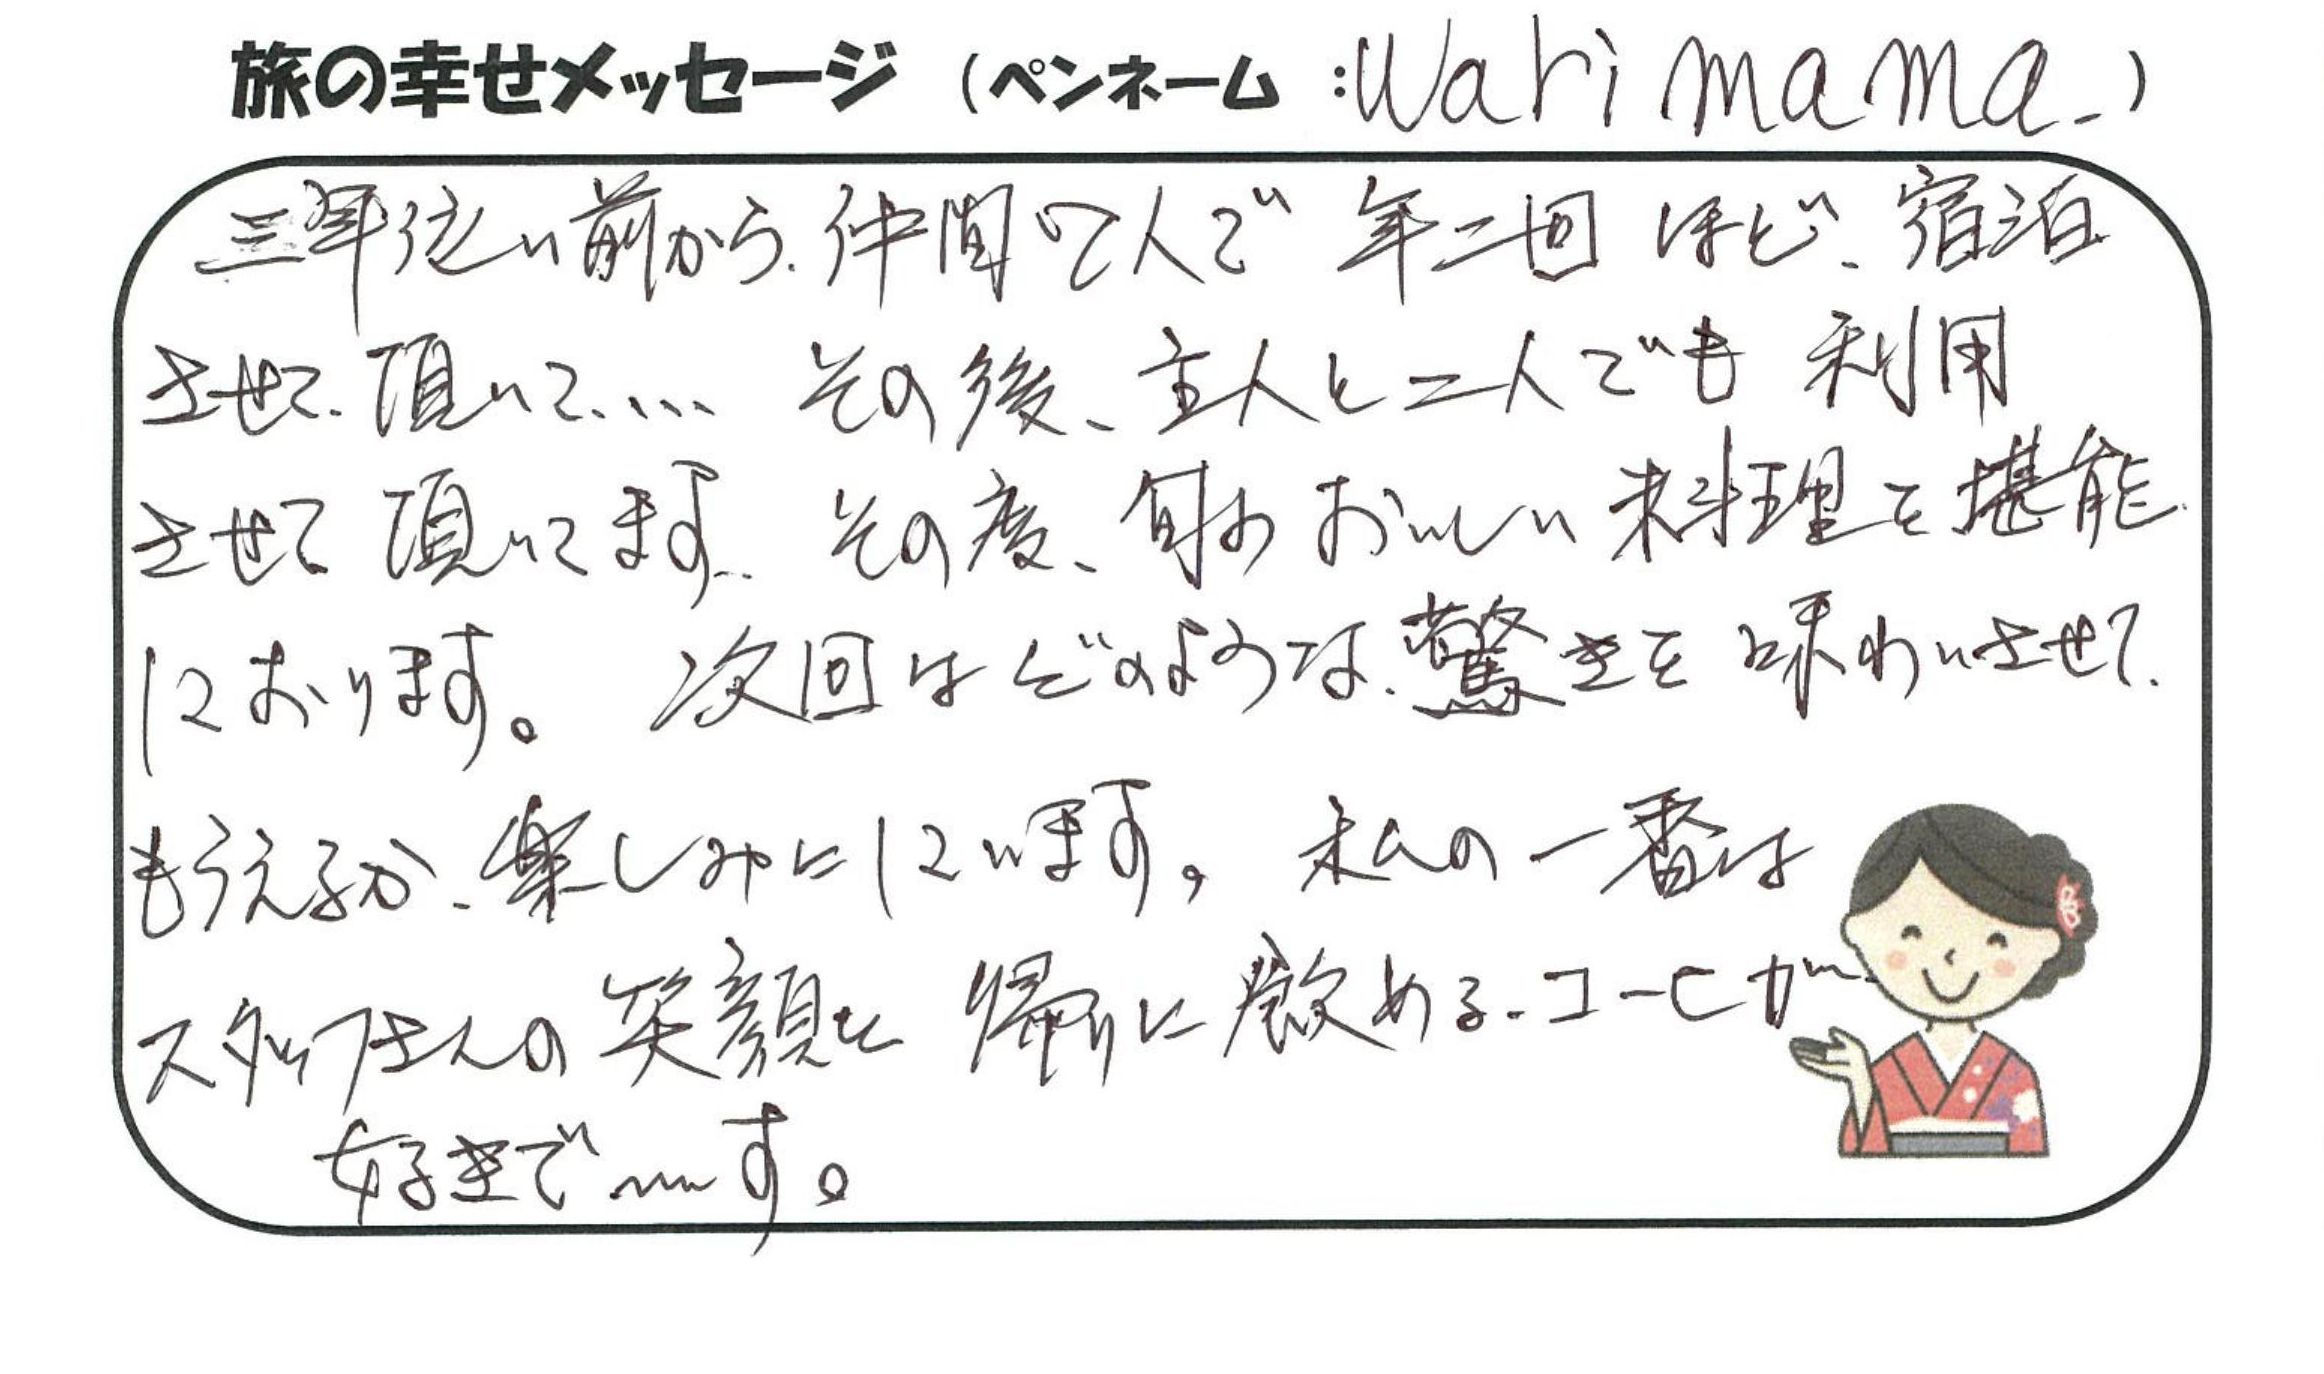 旅の幸せメッセージ (ペンネーム :Warimama.)
三年位い前から、仲間7人で 年二回 ほど、宿泊
させて、頂いて、… その後、主人と二人でも 利用
させて 頂いてます。 その度、旬の おいしい 料理を 堪能
しております。 次回は どのような、驚きを 味わいさせて、
もらえるか、楽しみにしています。 私の 一番は
スタッフさんの 笑顔と 帰りに飲める、コーヒが
好きで〜〜す。